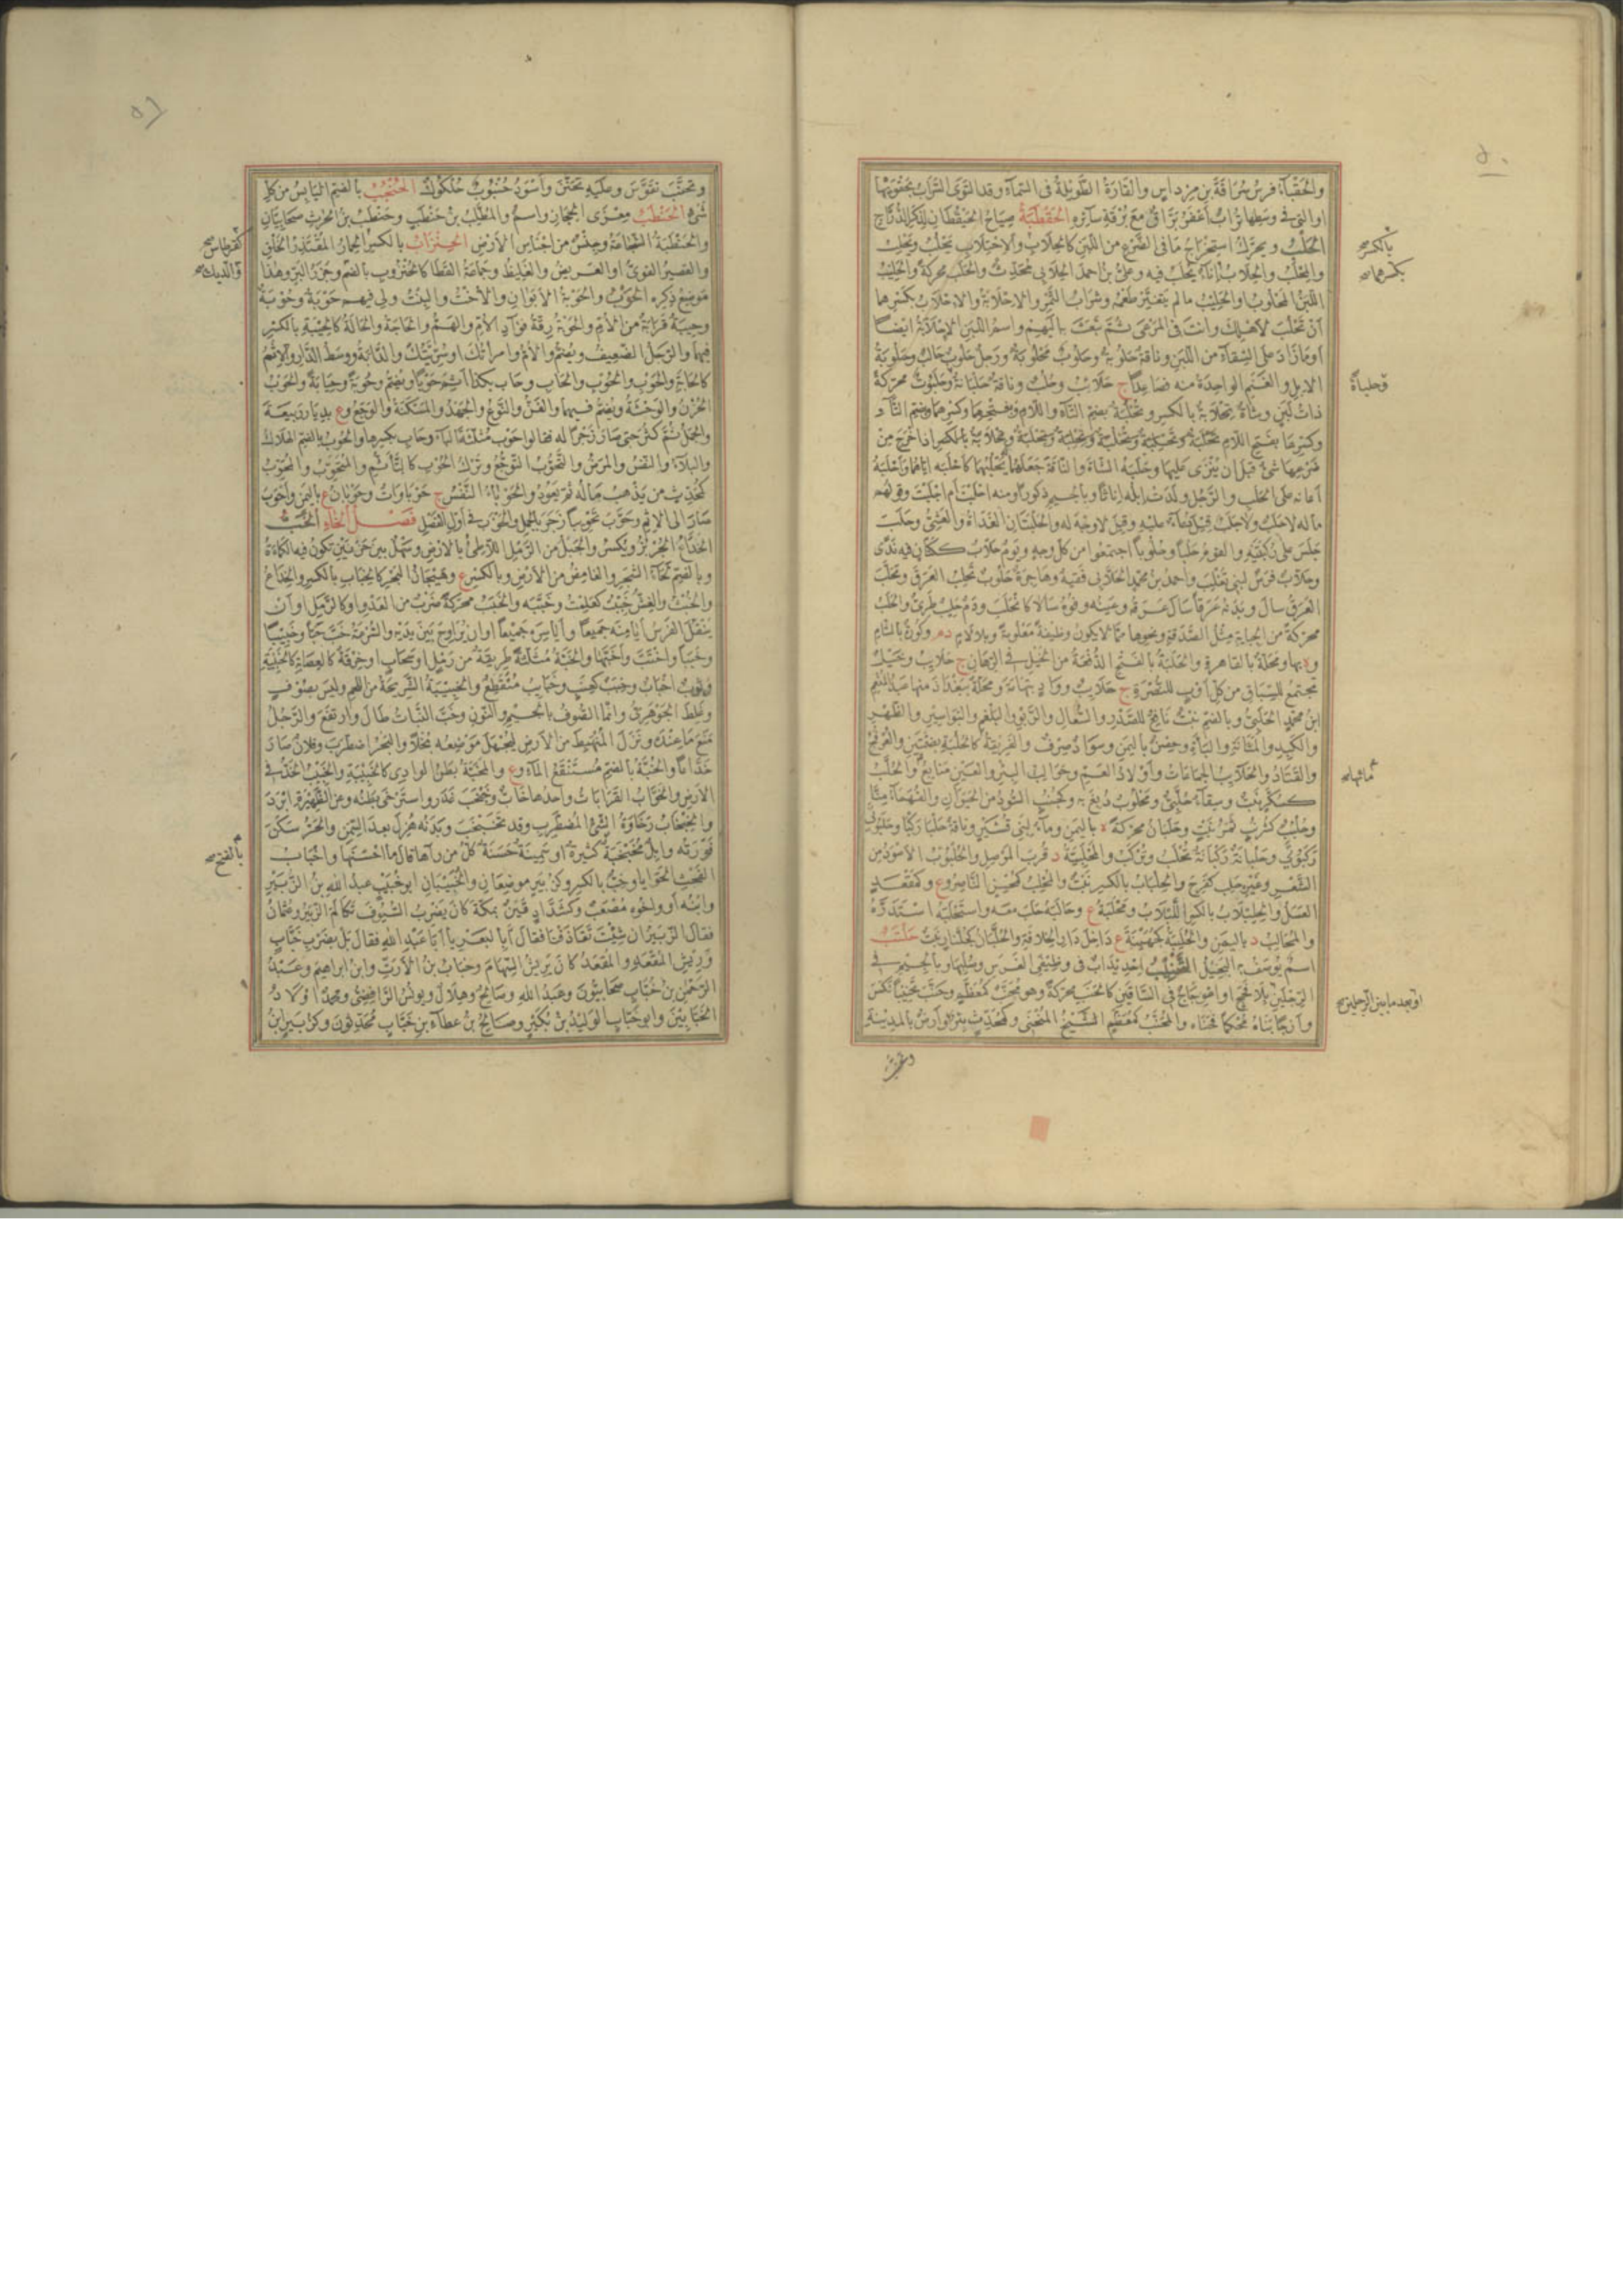 ٥٠
والحَقْباءُ فرسُ سُراقةَ بنِ مِرْداسٍ والقارةُ الطويلةُ فى السماء وقد التوى السَّرابُ بحَقْوَيْها
او التى فى وسطها ترابٌ أعفرُ برّاقٌ مع بُرْقةِ سائره الحَقْطَبَةُ صياحُ الحَيْقُطانِ لذكر الدُّرّاج
الحَلْبُ ويحرّك استخراجُ ما فى الضرع من اللبن كالحِلابِ والاحتلابِ يَحْلُبُ ويَحْلِبُ
والمِحْلَبُ والحِلابُ إناءٌ يُحلب فيه وعلىّ بن احمد الحِلابىّ محدّثٌ والحَلَبُ محركةً والحَليبُ
اللبنُ المحلوبُ او الحليبُ ما لم يتغيّر طعمُه وشرابُ التمر والاِحْلابةُ والاِحْلابُ بكسرهما
أن تحلب لأهلك وانت فى المرعى ثم تبعث به اليهم واسم اللبن الاِحْلابةُ ايضًا
او ما زاد على السقاء من اللبن وناقةٌ حلوبةٌ وحلوبٌ محلوبةٌ ورجلٌ حلوبٌ حالبٌ وحلوبةُ
الابل والغنم الواحدة منه فصاعدًا ج حلائبُ وحُلُبٌ وناقةٌ حَلْبانةٌ وحَلَبُوتٌ محركةً
ذاتُ لبنٍ وشاةٌ تِحْلابةٌ بالكسر وتُحْلُبةٌ بضم التاء واللام وبفتحهما وكسرهما وضم التاء
وكسرها بفتح اللام
ضرعها شىءٌ قبل ان يُنْزى عليها وحلبه الشاةَ والناقةَ جعلهما له يحلبهما كأحلبه اياهما وأحلبه
أعانه على الحلب والرجل ولدت ابله اناثًا وبالجيم ذكورًا ومنه أأحلبتَ أم أجلبتَ وقولهم
ماله لا حلب ولا جلب قيل دعاءٌ عليه وقيل لا وجه له والحَلْبتان الغداةُ والعشىُّ وحلب
جلس على ركبتيه والقومُ حلبًا وحلوبًا اجتمعوا من كل وجهٍ ويومٌ حَلّابٌ ككتّانٍ فيه ندًى
وحلّابٌ فرسٌ لبنى تغلب واحمد بن محمد الحلّابى فقيهٌ وهاجرةٌ حلوبٌ تحلب العرق وتحلّب
العرقُ سال وبدنه عرقًا سال عرقه وعينه وفوه سالا كانحلب ودمٌ حليبٌ طرىٌّ والحلب
محركةً من الجباية مثل الصدقة ونحوها ممّا لا يكون وظيفةً معلومةً وبلا لام د م وكورةٌ بالشام
و ة بها ومحلّةٌ بالقاهرة والحَلْبةُ بالفتح الدفعةُ من الخيل فى الرهان ج حلائب وخيلٌ
تجتمع للسباق من كل أوبٍ للنصرة ج حلائبُ ووادٍ بتهامةَ ومحلّةٌ ببغداد منها عبد المنعم
ابن محمد الحلبىّ وبالضم نبتٌ نافعٌ للصدر والسعال والربو والبلغم والبواسير والظهر
والكبد والمثانة والباءة وحصنٌ باليمن وسوادٌ صِرْفٌ والفريقةُ كالحلبة بضمتين والعرفج
والقتاد والحلائب الجماعات وأولاد العمّ وحوالب البئر والعين منابع والحلّب
كسكّرٍ نبتٌ وسقاءٌ حُلّبىٌّ ومحلوبٌ دُبغ به وكجُنُبٍ السودُ من الحيوان والفهماءُ منّا
وحُلْبُبٌ كشُرْبُبٍ ثمر نبتٍ وحَلَبان محركةً ة باليمن وماءٌ لبنى قشيرٍ وناقةٌ حلبا ركبا وحلبوتى
ركبوتى وحلبانةٌ ركبانةٌ تُحلب وتُركب والمَحْلبيّةُ د قرب الموصل والحُلْبوبُ الأسود من
الشعر وغيره حلب كفرح والحِلْباب بالكسر نبتٌ والمُحْلِب كمحسنٍ الناصر و ع وكمقعدٍ
العسل والحِلِبْلاب بالكسر اللبلاب ومَحْلبةُ ع وحالبه حلب معه واستحلبه استدرّه
والمحالب د باليمن والحُلَيْبةُ كجهينةَ ع داخل دار الخلافة والحُلّبان كجلّنارٍ نبتٌ حَلْتَبٌ
اسمٌ يوصف به البخيل التحنيب احديدابٌ فى وظيفى الفرس وصلبها وبالجيم فى
الرجلين بلا فحجٍ او اعوجاجٌ فى الساقين كالحنب محركةً وهو محنّبٌ كمعظّمٍ وحنّب تحنيبًا نكس
وأزجًا بناه محكمًا فحناه والمحنّب كمعظّمٍ الشيخ المنحنى وكمحدّثٍ بئرٌ او ارضٌ بالمدينة
بالكسر صح
بكسرهما صح
وحلباةٌ
مائها صح
او بعد ما بين الرجلين صح
وتحنّب
٥١
وتحنّب تقوّس وعليه تحنّن وأسودُ حُنْبوبٌ حُلكوكٌ الحُنْجُبُ بالضم اليابس من كل
شىء الحِنْطَبُ معزى الحجاز واسمٌ والمطّلب بن حنطبٍ وحنطب بن الحرث صحابيّان
والحنطبةُ الشجاعةُ وجنسٌ من اجناس الارض الحِنْزابُ بالكسر الحمار المقتدر الخلق
والقصير القوىّ او العريض والغليظ وجماعة القطا كالحُنْزوب بالضم وجزر البرّ وهذا
موضع ذكره الحَوْبُ والحَوْبةُ الأبوان والأختُ والبنتُ ولى فيهم حَوْبةٌ وحُوبةٌ
وحِيبةٌ قرابةٌ من الأم والحوبةُ رقّةُ فؤاد الأم والهمُّ والحاجةُ والحالةُ كالحِيبة بالكسر
فيهما والرجل الضعيف ويضمّ والأمّ وامرأتك او سُرّيّتك والدابّةُ ووسط الدار والإثمُ
كالحابة والحَوْب والحُوب والحاب وحاب بكذا أثم حوبًا ويضم وحوبةً وحيابةً والحَوْب
الحزن والوحشةُ ويضم فيهما والفنّ والنوع والجهد والمسكنةُ والوجع و ع بديار ربيعةَ
والجمل ثم كثر حتى صار زجرًا له فقالوا حوب مثلثةَ الباء وحاب بكسرها والحُوب بالضم الهلاك
والبلاء والنفس والمرض والتحوّب التوجّع وترك الحوب كالتأثّم والمتحوّب والمحوّب
كمحدّثٍ من يذهب ماله ثم يعود والحَوْباءُ النفس ج حوباوات وحَوْبان ع باليمن وأحوب
صار الى الإثم وحوّب تحويبًا زجر بالجمل والحوب فى اول الفصل فصل الخاء الخَبُّ
الخدّاع الجُرْبُز ويكسر والحبل من الرمل اللاطئ بالارض وسهلٌ بين حزنين تكون فيه الكمأة
وبالضم لحاء الشجر والغامض من الارض وبالكسر ع وهيجان البحر كالخِباب بالكسر والخداع
والخبث والغشّ خببت كعلمت وخبّبه والخبب محركةً ضربٌ من العدو او كالرمل او أن
ينقل الفرس أيامنه جميعًا وأياسره جميعًا او ان يراوح بين يديه والسرعة خبّ خبًّا وخبيبًا
وخببًا واختبّ وأخبّها والخُبّةُ مثلثةً طريقةٌ من رملٍ او سحابٍ او خرقةٌ كالعصابة كالخبيبة
وثوبٌ أخبابٌ وخِبَبٌ كعنبٍ وخبائبُ متقطّعٌ والخبيبة الشريحة من اللحم وليس بصوفٍ
وغلط الجوهرىّ وانما الصوف بالجيم والنون وخبّ النبات طال وارتفع والرجل
منع ما عنده ونزل المنهبط من الارض ليُجهل موضعه بخلًا والبحر اضطرب وفلانٌ صار
خدّاعًا والخُبّةُ بالضم مستنقع الماء و ع والمَخبّة بطن الوادى كالخبيبة والخبيب الخدّ فى
الارض والخوابّ القرابات واحدها خابٌّ وخبخب غدر واسترخى بطنه ومن الظهيرة ابرد
والخَبْخاب رخاوة الشىء المضطرب وقد تخبخب وبدنه هُزل بعد السمن والحرّ سكن
فورته وابلٌ مخبخبةٌ كثيرةٌ او سمينةٌ حسنةٌ كلّ من رآها قال ما احسنها واخباب
الفحث الحوايا وخِبٌّ بالكسر وكزبيرٍ موضعان والخُبيبان ابو خبيبٍ عبد الله بن الزبير
وابنه او واخوه مصعبٌ وكشدّادٍ قينٌ بمكة كان يضرب السيوف تكالم الزبير وعثمان
فقال الزبير ان شئت تقاذفنا فقال أبالبعر يا أبا عبد الله فقال بل بضرب خبّابٍ
وريش المقعد والمقعد كان يريش السهام وخبّاب بن الأرتّ وابن ابراهيم وعبد
الرحمن بن خبّاب صحابيّون وعبد الله وصالح وهلال ويونس الرافضى ومحمد اولاد
الخبّابين وابو خبّاب الوليد بن بكيرٍ وصالح بن عطاء بن خبّابٍ محدّثون وكزبيرٍ ابن
كقرطاس صح
والديك صح
بالفتح صح